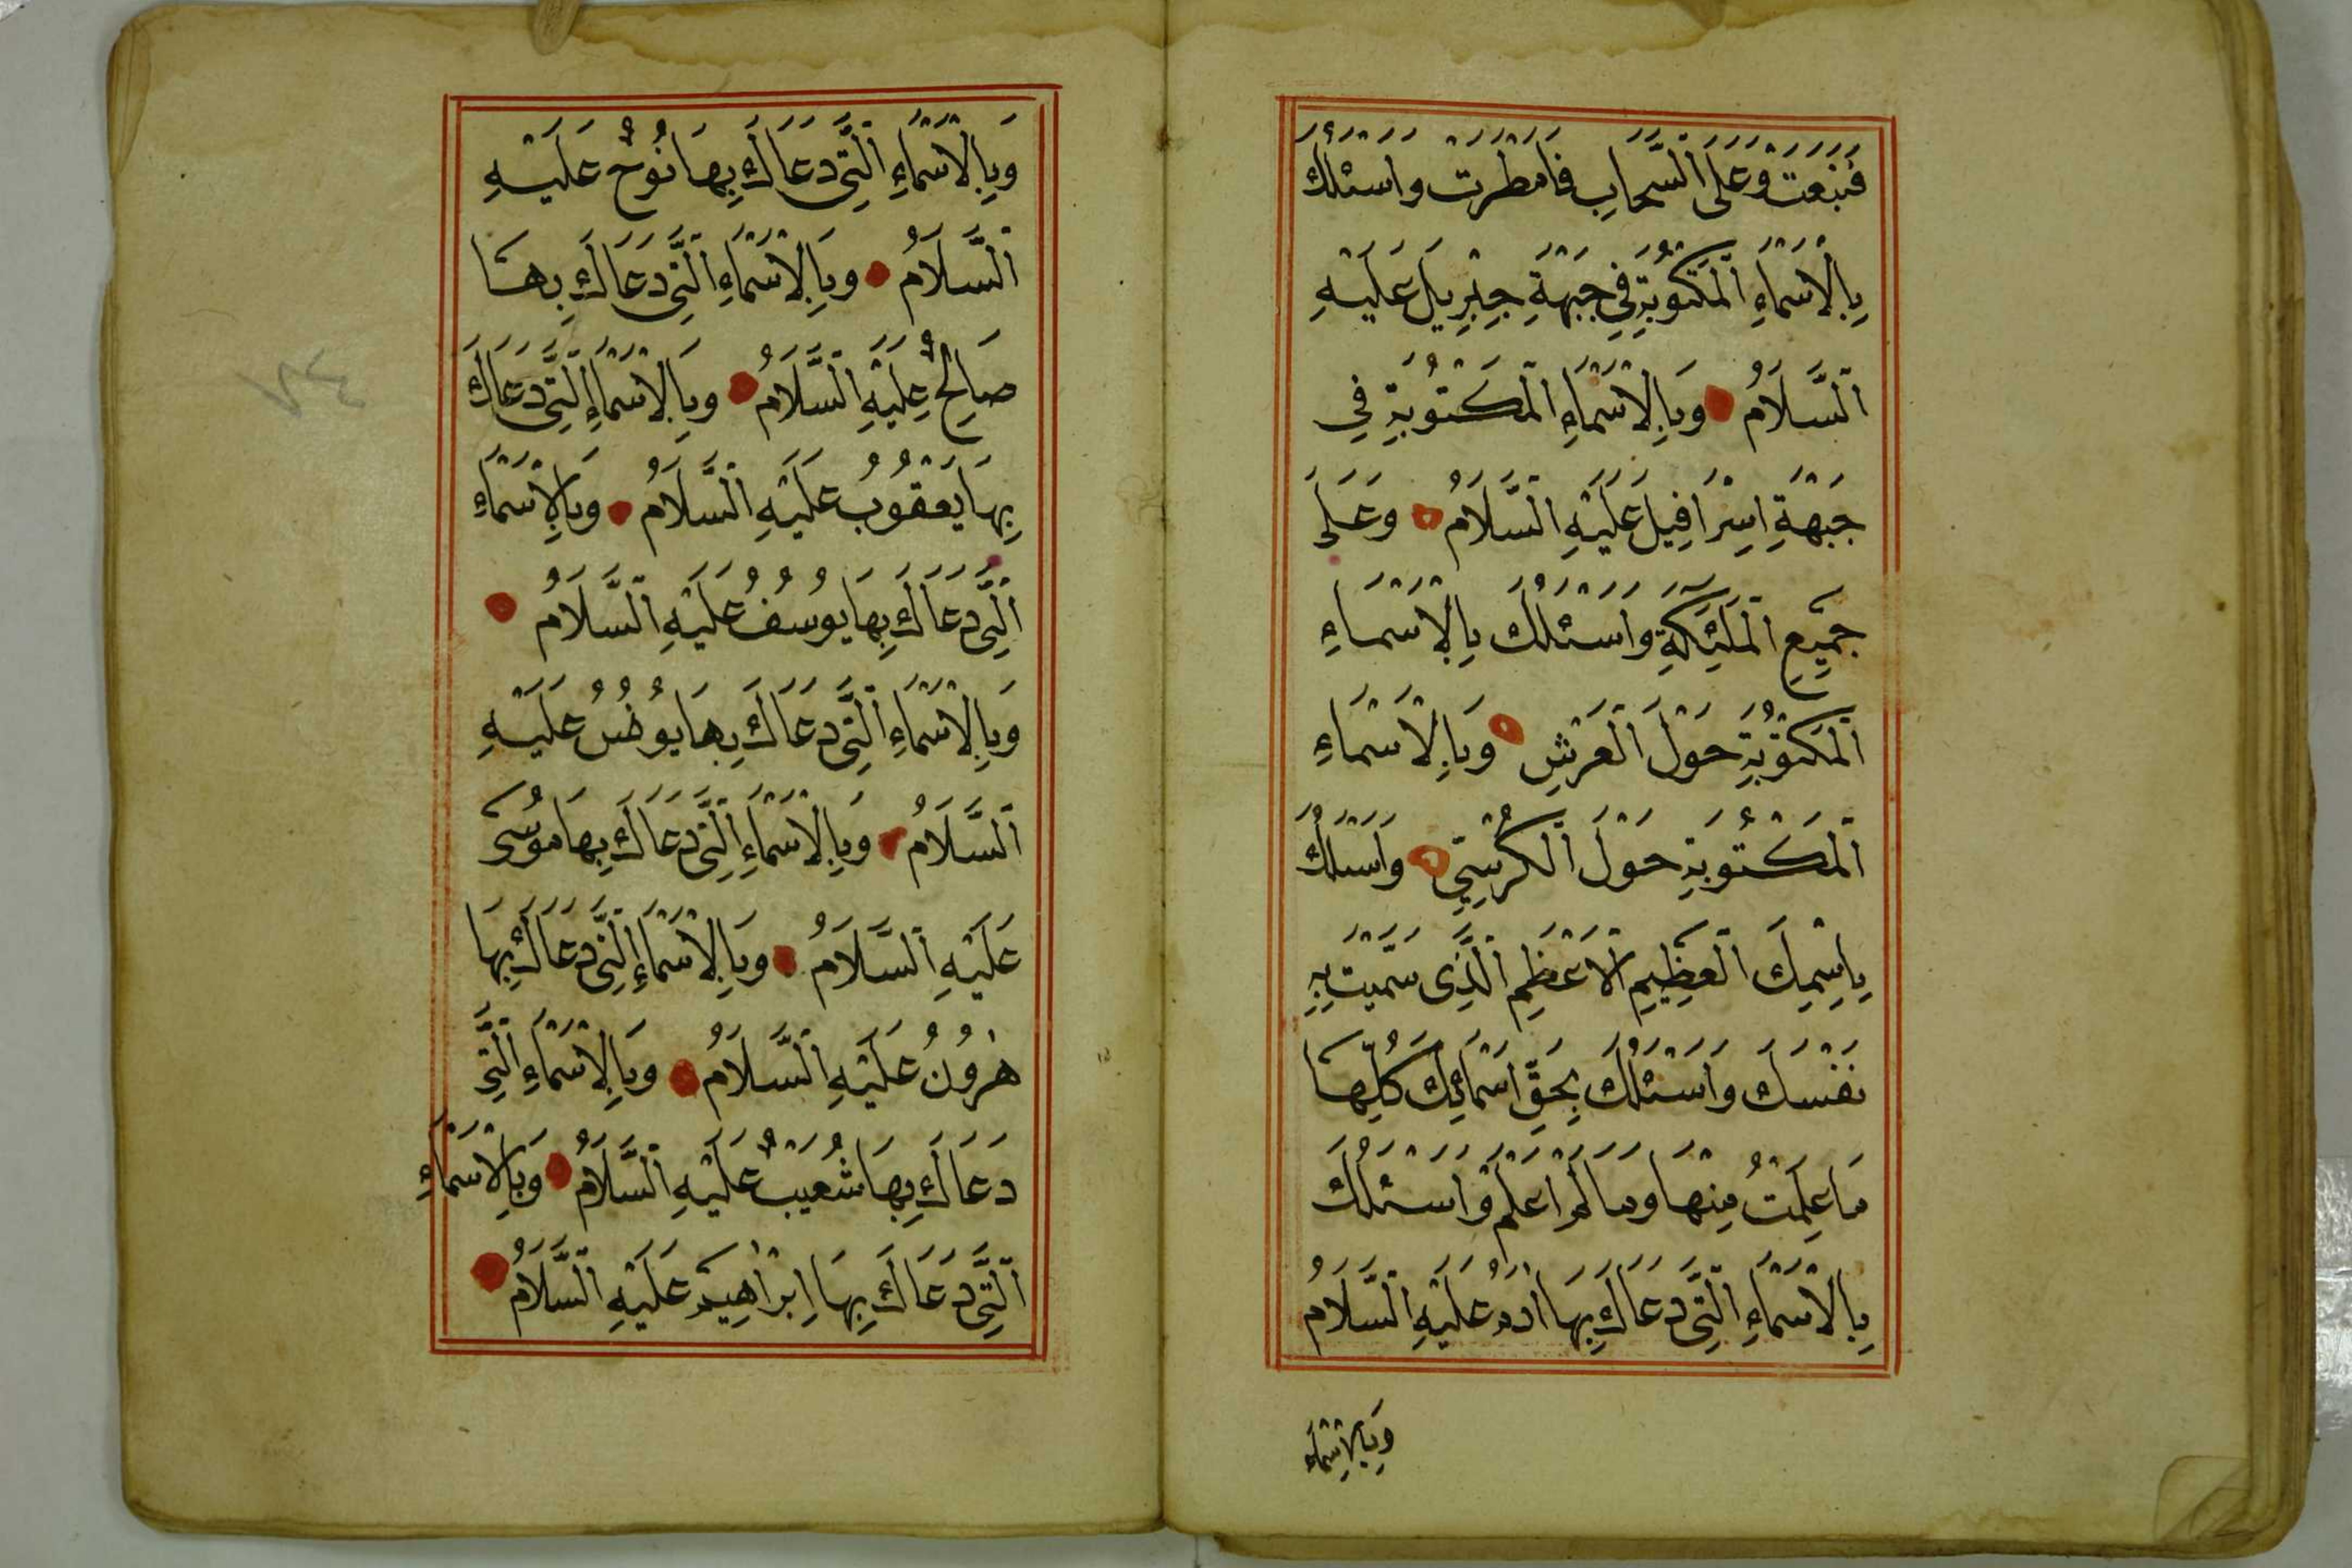 فَنَبَعَتْ وَعَلَى السَّحَابِ فَاَمْطَرَتْ وَاَسْئَلُكَ
بِالْاَسْمَاءِ الْمَكْتُوبَةِ فِي جَبْهَةِ جِبْرِيلَ عَلَيْهِ
السَّلَامُ وَبِالْاَسْمَاءِ الْمَكْتُوبَةِ فِي
جَبْهَةِ اِسْرَافِيلَ عَلَيْهِ السَّلَامُ وَعَلَى
جَمِيعِ الْمَلٰئِكَةِ وَاَسْئَلُكَ بِالْاَسْمَاءِ
الْمَكْتُوبَةِ حَوْلَ الْعَرْشِ وَبِالْاَسْمَاءِ
الْمَكْتُوبَةِ حَوْلَ الْكُرْسِيِّ وَاَسْئَلُكَ
بِاِسْمِكَ الْعَظِيمِ الْاَعْظَمِ الَّذِى سَمَّيْتَ بِهِ
نَفْسَكَ وَاَسْئَلُكَ بِحَقِّ اَسْمَائِكَ كُلِّهَا
مَا عَلِمْتُ مِنْهَا وَمَا لَمْ اَعْلَمْ وَاَسْئَلُكَ
بِالْاَسْمَاءِ الَّتِى دَعَاكَ بِهَا اٰدَمُ عَلَيْهِ السَّلَامُ
وَبِالْاَسْمَاءِ
وَبِالْاَسْمَاءِ الَّتِى دَعَاكَ بِهَا نُوحٌ عَلَيْهِ
السَّلَامُ وَبِالْاَسْمَاءِ الَّتِى دَعَاكَ بِهَا
صَالِحٌ عَلَيْهِ السَّلَامُ وَبِالْاَسْمَاءِ الَّتِى دَعَاكَ
بِهَا يَعْقُوبُ عَلَيْهِ السَّلَامُ وَبِالْاَسْمَاءِ
الَّتِى دَعَاكَ بِهَا يُوسُفُ عَلَيْهِ السَّلَامُ
وَبِالْاَسْمَاءِ الَّتِى دَعَاكَ بِهَا يُونُسُ عَلَيْهِ
السَّلَامُ وَبِالْاَسْمَاءِ الَّتِى دَعَاكَ بِهَا مُوسَى
عَلَيْهِ السَّلَامُ وَبِالْاَسْمَاءِ الَّتِى دَعَاكَ بِهَا
هٰرُونُ عَلَيْهِ السَّلَامُ وَبِالْاَسْمَاءِ الَّتِى
دَعَاكَ بِهَا شُعَيْبٌ عَلَيْهِ السَّلَامُ وَبِالْاَسْمَاءِ
الَّتِى دَعَاكَ بِهَا اِبْرٰاهِيمُ عَلَيْهِ السَّلَامُ